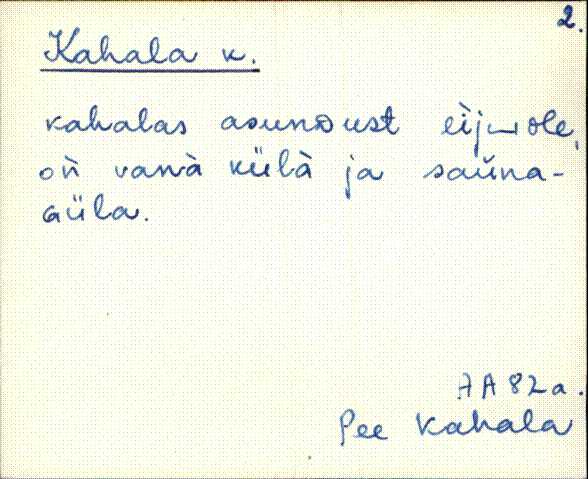 2.
Kahala k.
kahalas asunᴅust eij‿ole,
oǹ vanà külà ja saùna-
ɢüla.
AA 82 a.
Pee Kahala